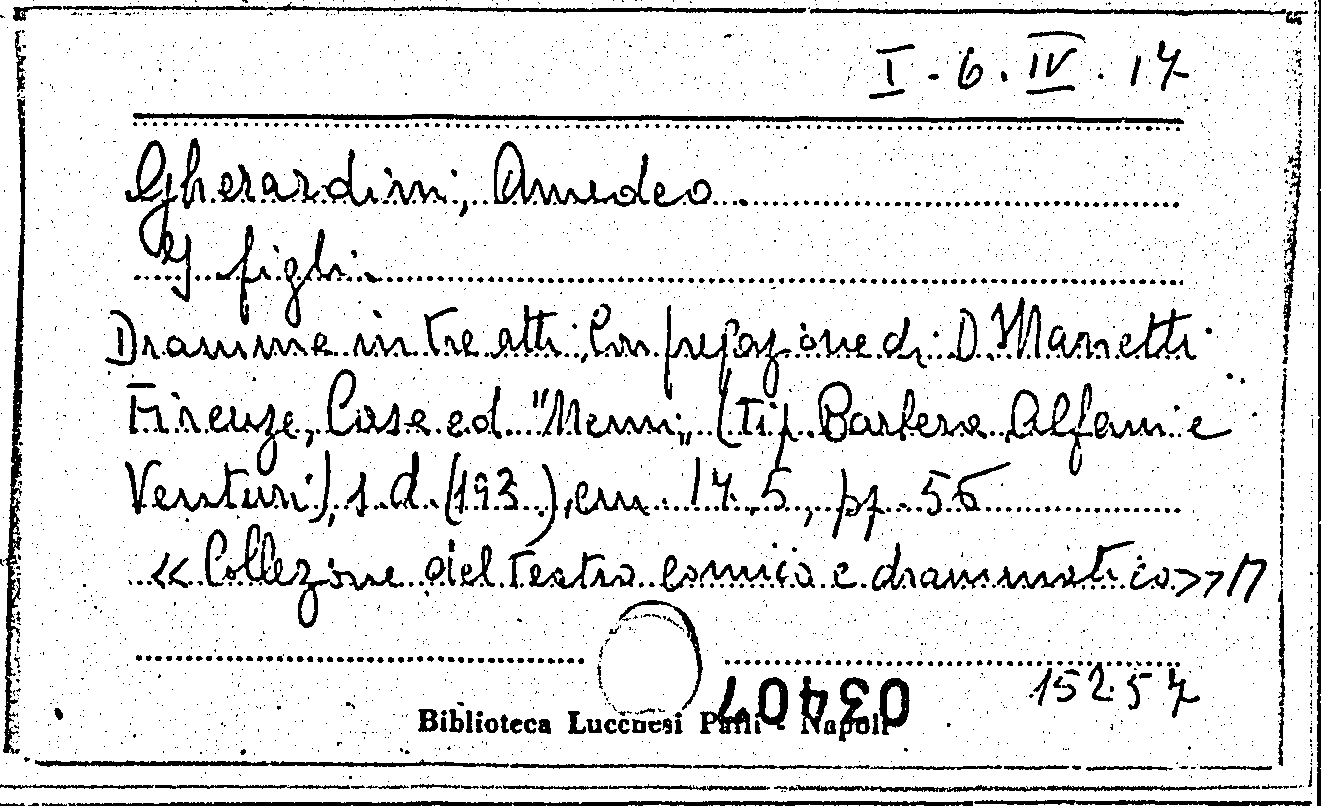 I. 6. IV. 17
Gherardini, Amedeo.
I figli
Dramma in tre atti; Con prefazione di D. Manetti.
Firenze, Casa ed. "Nemi„ (Tip. Barbera Alfani e
Venturi), s. d. (193 ), cm. 17.5, pp. 56
<< Collezione del teatro comico e drammatico>>
15257
03407
Biblioteca Lucchesi Palli - Napoli